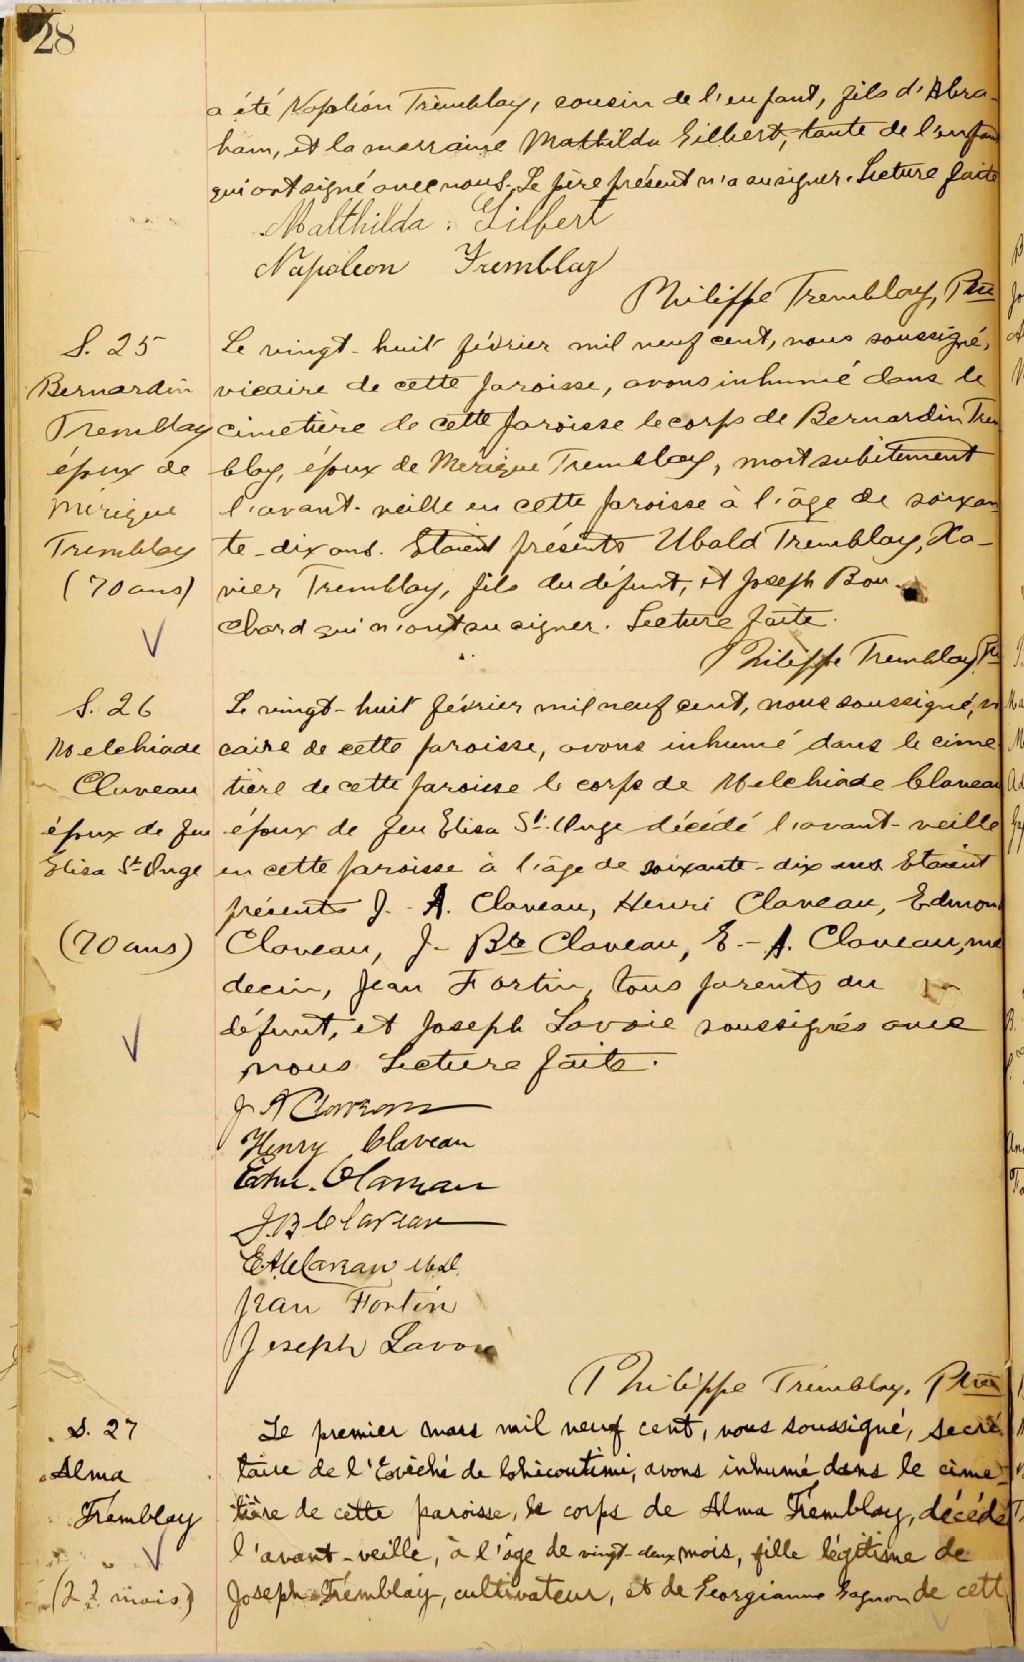 28
a été Napoléon Tremblay, cousin de l'enfant, fils d'Abra-
ham, et la marraine Mathilda Gilbert, tante de l'enfant
qui ont signé avec nous. Le père présent n'a su signer. Lecture faite
Malthilda Gilbert
Napoleon Tremblay
Philippe Tremblay, Ptre
S. 25
Bernardin
Tremblay
époux de
Mérigue
Tremblay
(70 ans)
Le vingt-huit février mil neuf cent, nous soussigné,
vicaire de cette paroisse, avons inhumé dans le
cimetière de cette paroisse le corps de Bernardin Trem
blay, époux de Merigue Tremblay, mort subitement
l'avant-veille en cette paroisse à l'âge de soixan
te-dix ans. Etaient présents Ubald Tremblay, Xa-
vier Tremblay, fils du défunt, et Joseph Bou-
chard qui n'ont su signer. Lecture faite.
Philippe Tremblay Ptre
S. 26
Melchiade
Claveau
époux de feu
Elisa St-Onge
(70 ans)
Le vingt-huit février mil neuf cent, nous soussigné, vi
caire de cette paroisse, avons inhumé dans le cime
tière de cette paroisse le corps de Melchiade Claveau
époux de feu Elisa St-Onge décédé l'avant-veille
en cette paroisse à l'âge de soixante-dix ans Etaient
présents J.-A. Claveau, Henri Claveau, Edmond
Claveau, J-Bte Claveau, E.-A. Claveau, mé
decin, Jean Fortin, tous parents du
défunt, et Joseph Lavoie soussignés avec
nous Lecture faite.
J A Claveau
Henry Claveau
Edm. Claveau
J.B Claveau
E.A Claveau M.D.
Jean Fortin
Joseph Lavoie
Philippe Tremblay, Ptre
S. 27
Alma
Tremblay
(22 mois)
Le premier mars mil neuf cent, nous soussigné, secré
taire de l'Evêché de Chicoutimi, avons inhumé dans le cime-
tière de cette paroisse, le corps de Alma Tremblay, décédé
l'avant-veille, à l'âge de vingt-deux mois, fille légitime de
Joseph Tremblay, cultivateur, et de Georgianna Gagnon de cett